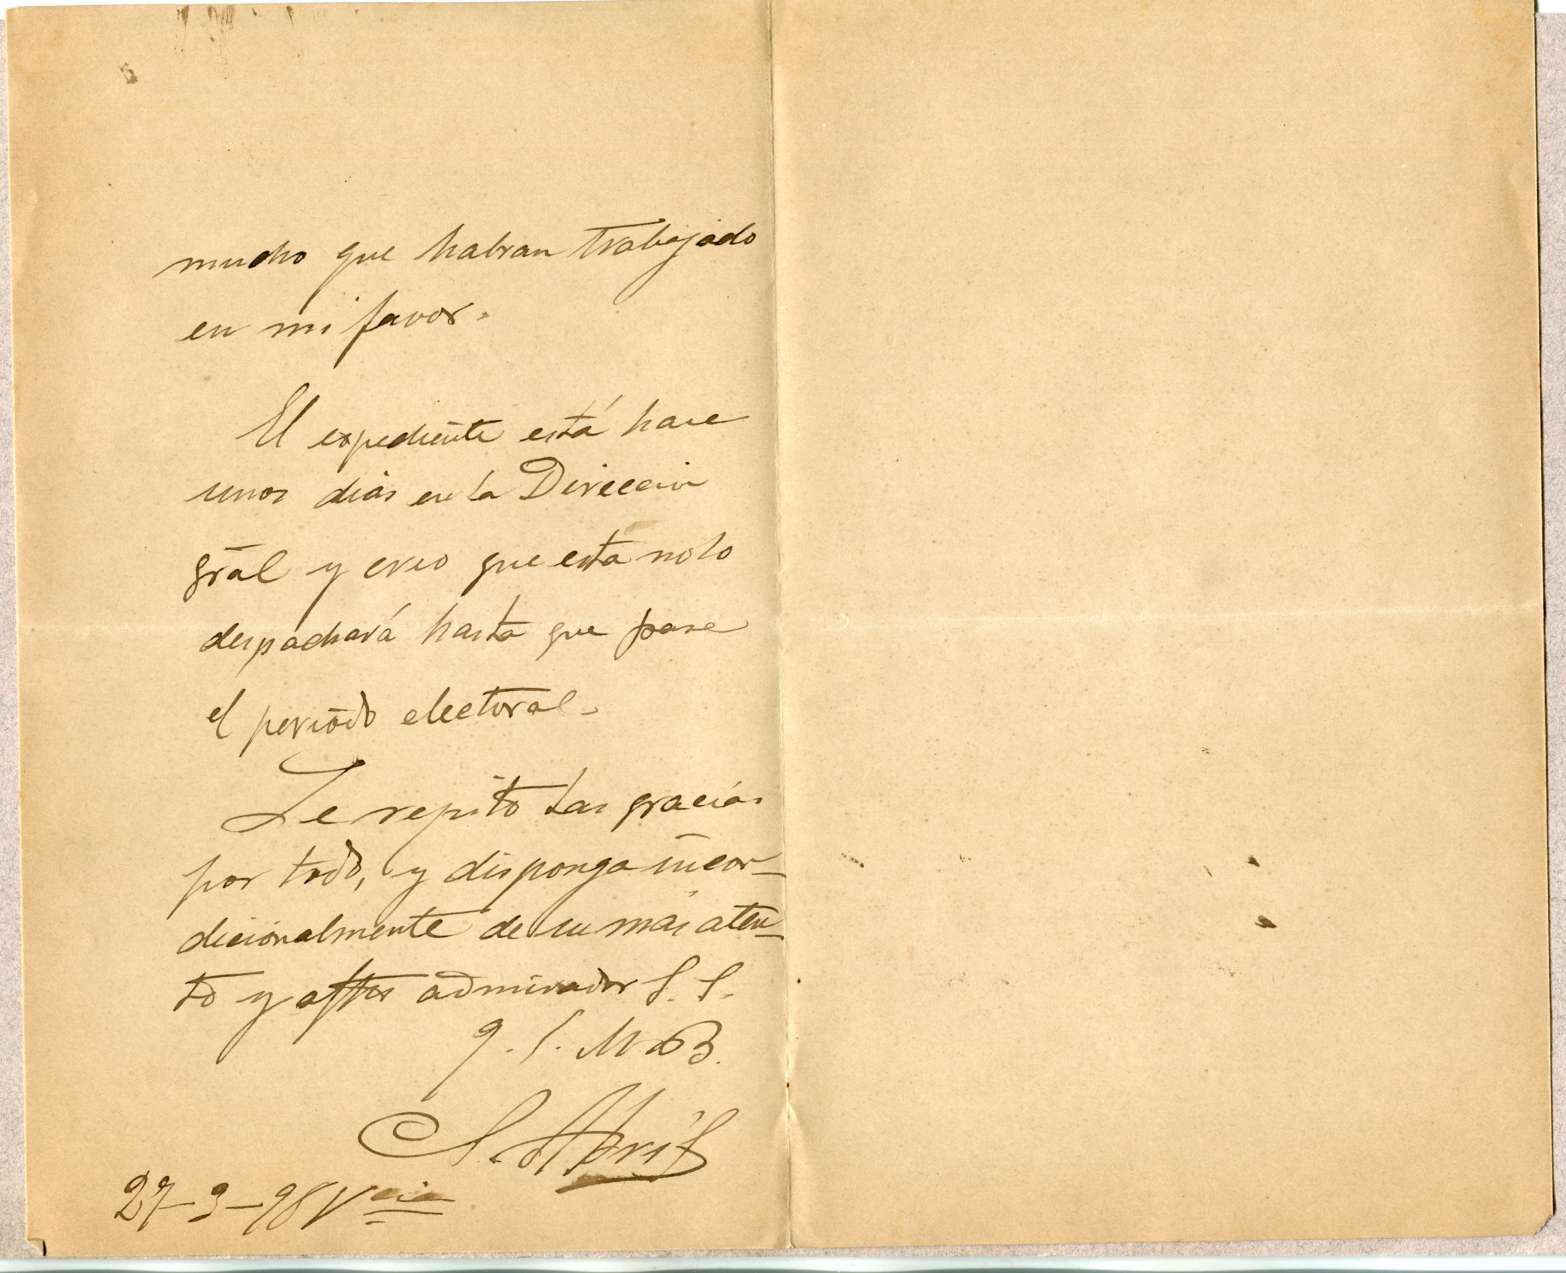 mucho que habran trabajado
en mi favor.
El expediente está hace
unos dias en la Direccion
gral y creo que esta no lo
despachará hasta que pase
el periodo electoral.
Le repito las gracias
por todo, y disponga incon-
dicionalmente de su más aten-
to y affmo admirador S. S.
q. S. M. B.
S. Abril
27-3-98 Vcia